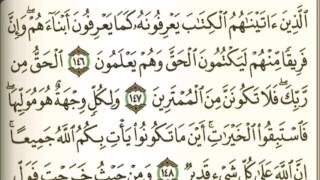 ٱلَّذِينَ ءَاتَيْنَٰهُمُ ٱلْكِتَٰبَ يَعْرِفُونَهُۥ كَمَا يَعْرِفُونَ أَبْنَآءَهُمْ ۖ وَإِنَّ
فَرِيقًا مِّنْهُمْ لَيَكْتُمُونَ ٱلْحَقَّ وَهُمْ يَعْلَمُونَ ١٤٦ ٱلْحَقُّ مِن
رَّبِّكَ ۖ فَلَا تَكُونَنَّ مِنَ ٱلْمُمْتَرِينَ ١٤٧ وَلِكُلٍّ وِجْهَةٌ هُوَ مُوَلِّيهَا ۖ
فَٱسْتَبِقُوا۟ ٱلْخَيْرَٰتِ ۚ أَيْنَ مَا تَكُونُوا۟ يَأْتِ بِكُمُ ٱللَّهُ جَمِيعًا ۚ
إِنَّ ٱللَّهَ عَلَىٰ كُلِّ شَىْءٍ قَدِيرٌ ١٤٨ وَمِنْ حَيْثُ خَرَجْتَ فَوَلِّ